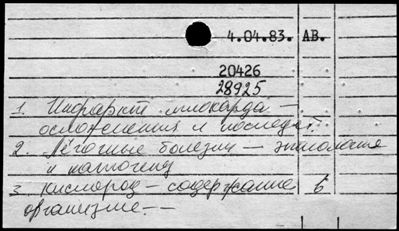 4.04.83. АВ.
20426
28925
1. Инфаркт миокарда –
осложнения и последст.
2. Лёгочные болезни – этиология
и патогенез
3. Кислород – содержание в
организме. –